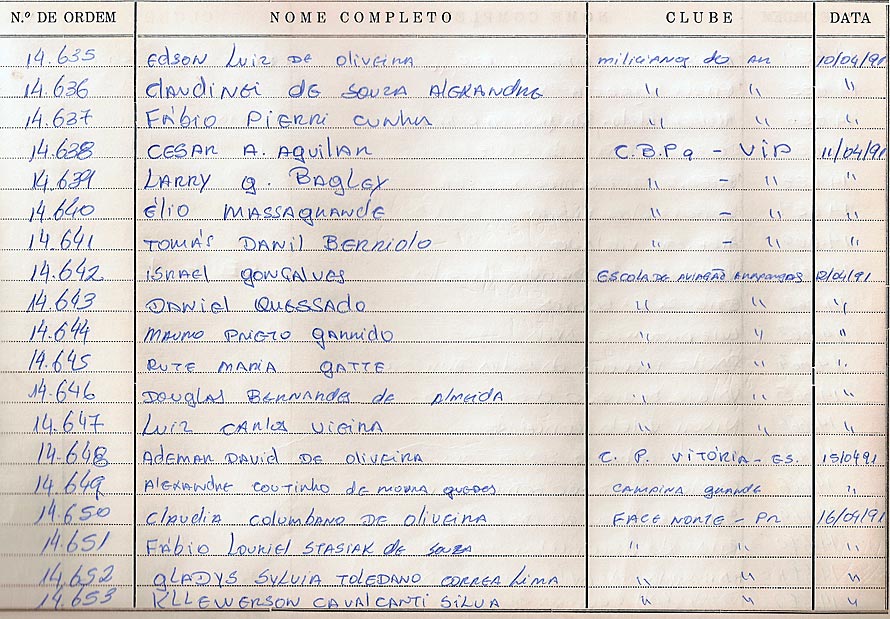 N.º DE ORDEM NOME COMPLETO CLUBE DATA
14.635 Edson Luiz de Oliveira milicianos do ar 10/04/91
14.636 Claudinei de Souza Alexandre " " "
14.637 Fábio Pierri Cunha " " "
14.638 Cesar A. Aguilar C.B.Pq - VIP 11/04/91
14.639 Larry G. Bagley " - " "
14.640 Élio Massagrande " - " "
14.641 Tomás Danil Berriolo " - " "
14.642 Israel Gonçalves Escola de Aviação Arapongas 12/04/91
14.643 Daniel Quessado " " "
14.644 Mauro Prieto Garrido " " "
14.645 Rute Maria Gatte " " "
14.646 Douglas Bernardes de Almeida " " "
14.647 Luiz Carlos Vieira " " "
14.648 Ademar David de Oliveira C. P. Vitória - ES. 15/04/91
14.649 Alexandre Coutinho de Moura Guedes Campina Grande "
14.650 Claudia Columbano de Oliveira Face Norte - Pr 16/04/91
14.651 Fábio Louriel Stasiak de Souza " " "
14.652 Gladys Sylvia Toledano Correa Lima " " "
14.653 Cavalcanti Silva " " "